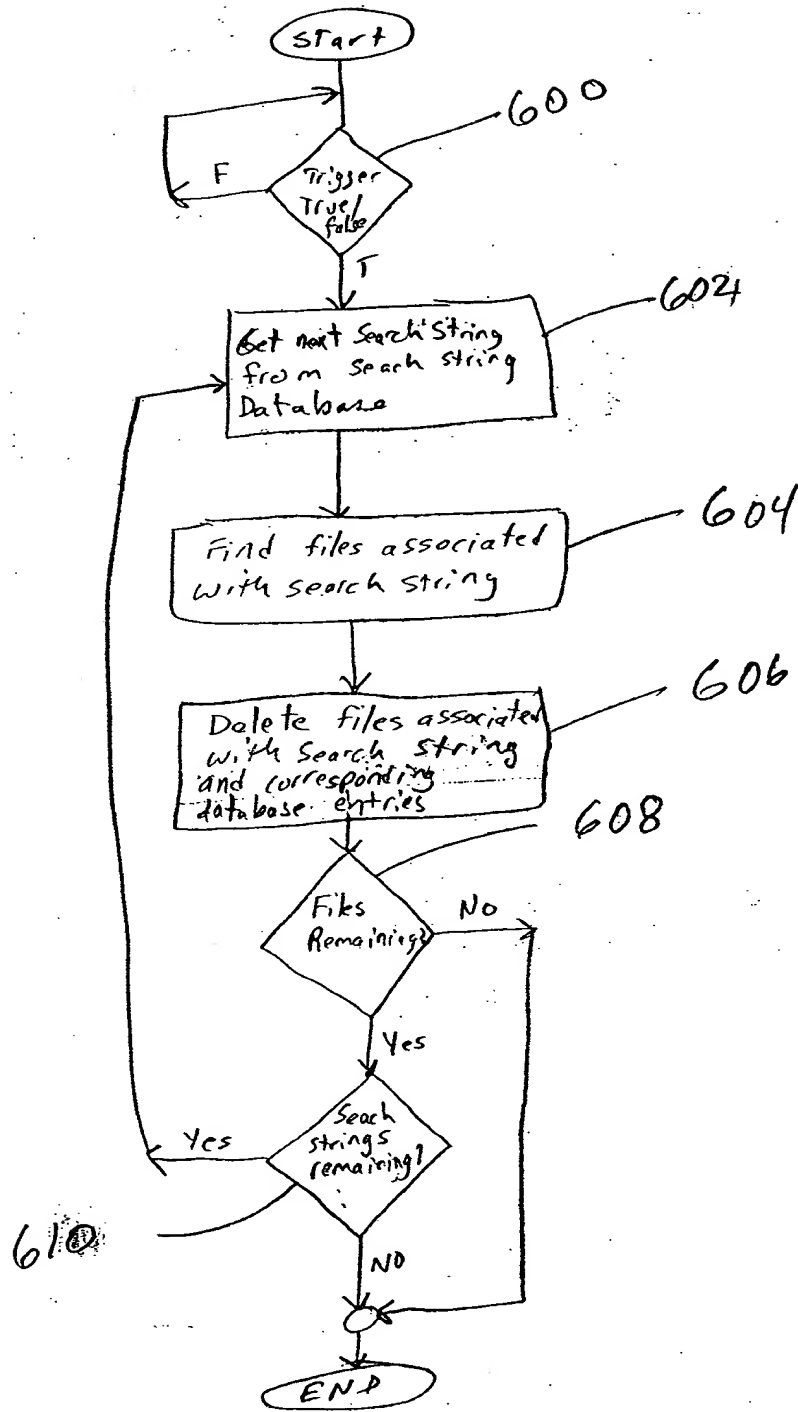 Start
600
F
Trigger
True/
false
T
602
Get next Search String
from Search string
Database
604
Find files associated
with search string
606
Delete files associated
with Search string
and corresponding
database entries
608
Files
Remaining?
No
Yes
Seach
strings
remaining?
Yes
610
NO
END